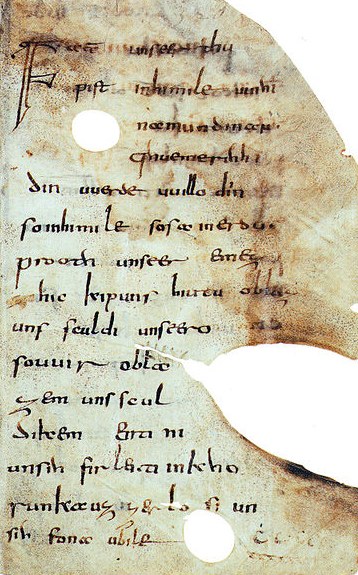 Fater unseer thu
pist inhimile uuihi
namun dinan
qhueme rihhi
din uuerde uuillo diin
so inhimile sosa in erdu
prooth unseer emez
hic kip uns hiutu oblaz
uns sculdi unsero
so uuir oblaz
em uns scul
dikem enti ni
unsih firleiti in kho
runka uzzer losi un
sih fona ubile